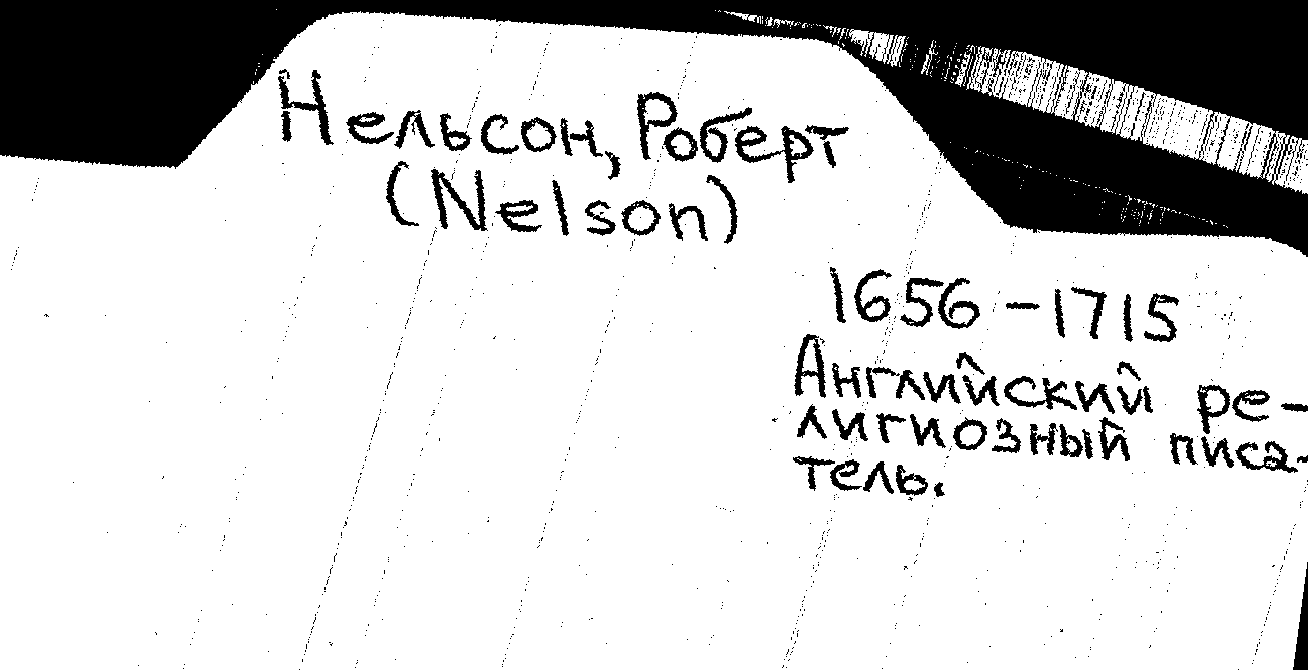 Нельсон, Роберт
(Nelson)
1656 – 1715
Английский ре-
лигиозный писа-
тель.